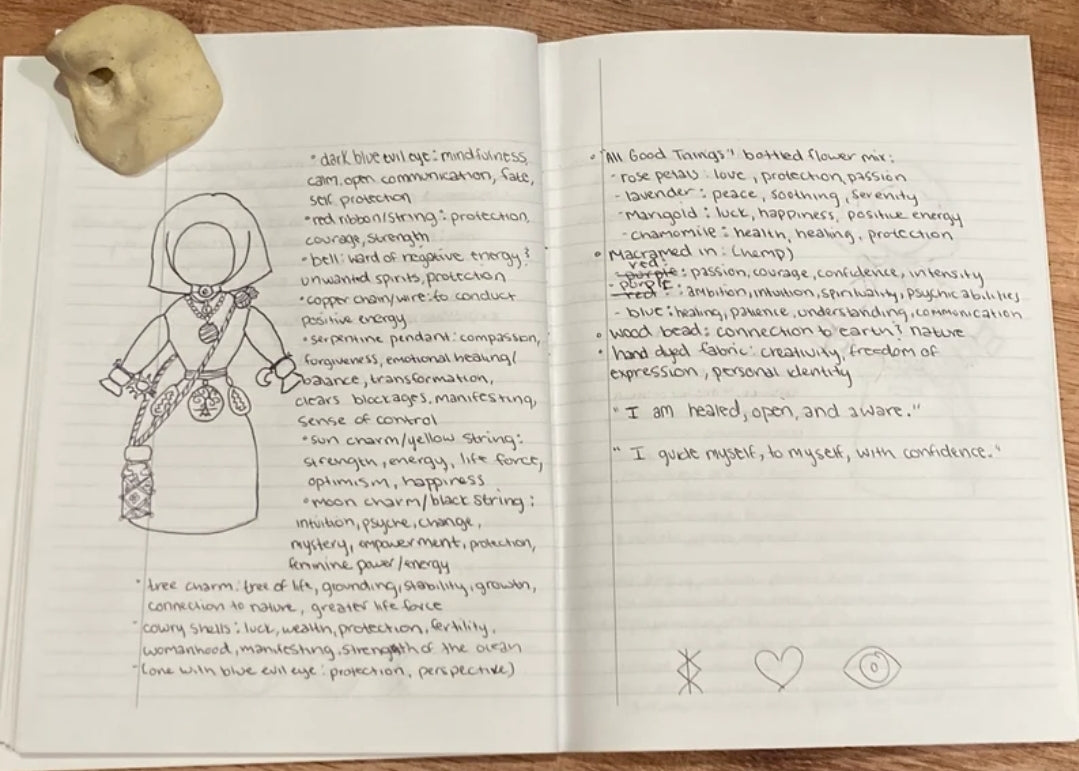 • dark blue evil eye: mindfulness,
calm, open communication, fate,
self protection
• red ribbon/string: protection,
courage, strength
• bell: ward of negative energy &
unwanted spirits, protection
• copper chain/wire: to conduct
positive energy
• serpentine pendant: compassion,
forgiveness, emotional healing/
balance, transformation,
clears blockages, manifesting,
sense of control
• sun charm/yellow string:
strength, energy, life force,
optimism, happiness
• moon charm/black string:
intuition, psyche, change,
mystery, empowerment, protection,
feminine power/energy
• tree charm: tree of life, grounding, stability, growth,
connection to nature, greater life force
• cowry shells: luck, wealth, protection, fertility,
womanhood, manifesting, strength of the ocean
- (one with blue evil eye: protection, perspective)
• "All Good Things" bottled flower mix:
- rose petals: love, protection, passion
- lavender: peace, soothing, serenity
- marigold: luck, happiness, positive energy
- chamomile: health, healing, protection
• Macramed in: (hemp)
red:
- purple: passion, courage, confidence, intensity
purple
- red: ambition, intuition, spirituality, psychic abilities
- blue: healing, patience, understanding, communication
• wood bead: connection to earth & nature
• hand dyed fabric: creativity, freedom of
expression, personal identity
"I am healed, open, and aware."
"I guide myself, to myself, with confidence."